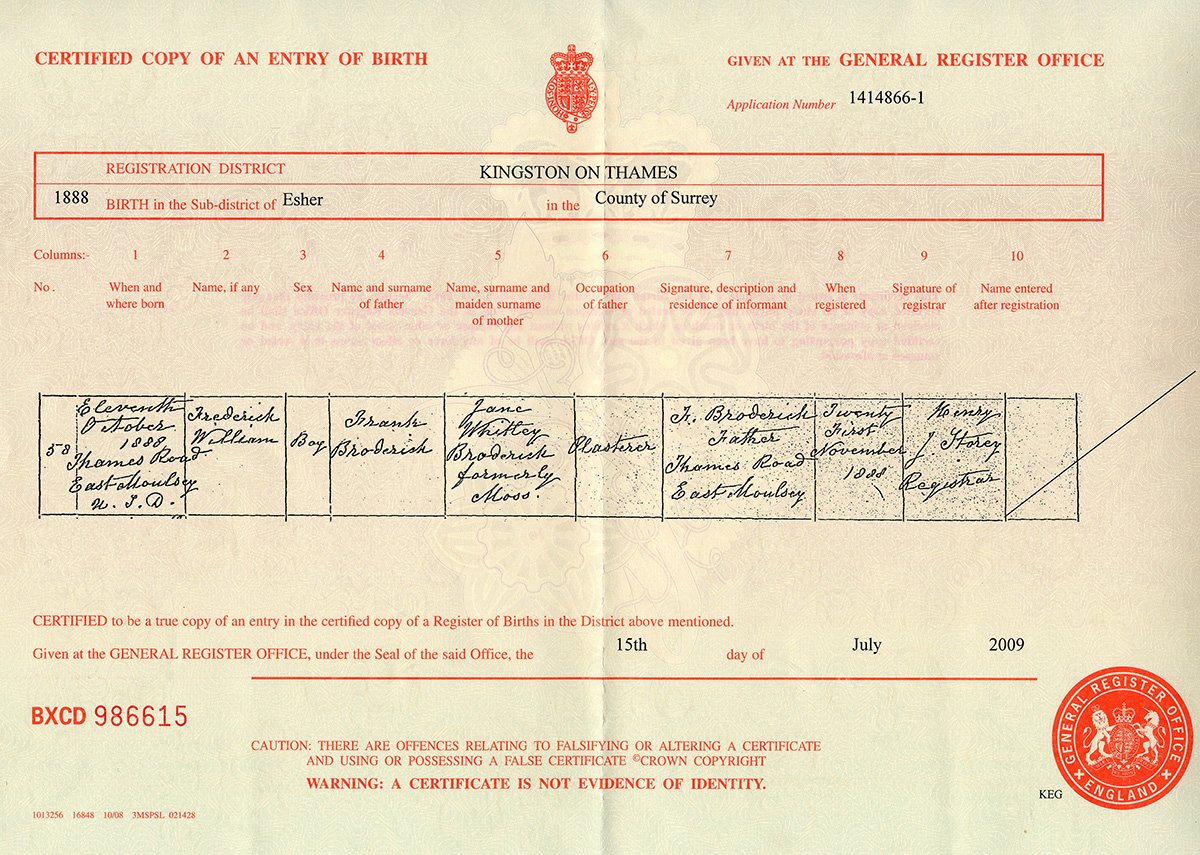 CERTIFIED COPY OF AN ENTRY OF BIRTH
GIVEN AT THE GENERAL REGISTER OFFICE
Application Number 1414866-1
REGISTRATION DISTRICT KINGSTON ON THAMES
1888 BIRTH in the Sub-district of Esher in the County of Surrey
Columns:- 1 2 3 4 5 6 7 8 9 10
No. When and where born
Name, if any
Sex
Name and surname of father
Name, surname and maiden surname of mother
Occupation of father
Signature, description and residence of informant
When registered
Signature of registrar
Name entered after registration
58
Eleventh
October
1888
Thames Road
East Moulsey
U.S.D.
Frederick
William
Boy
Frank
Broderick
Jane
Whitley
Broderick
formerly
Moss.
Plasterer
F. Broderick
Father
Thames Road
East Moulsey
Twenty
First
November
1888
Henry
J. Storey
Registrar
CERTIFIED to be a true copy of an entry in the certified copy of a Register of Births in the District above mentioned.
Given at the GENERAL REGISTER OFFICE, under the Seal of the said Office, the 15th day of July 2009
BXCD 986615
CAUTION: THERE ARE OFFENCES RELATING TO FALSIFYING OR ALTERING A CERTIFICATE
AND USING OR POSSESSING A FALSE CERTIFICATE ©CROWN COPYRIGHT
WARNING: A CERTIFICATE IS NOT EVIDENCE OF IDENTITY.
GENERAL REGISTER OFFICE
ENGLAND
KEG
1013256 16848 10/08 3MSPSL 021428